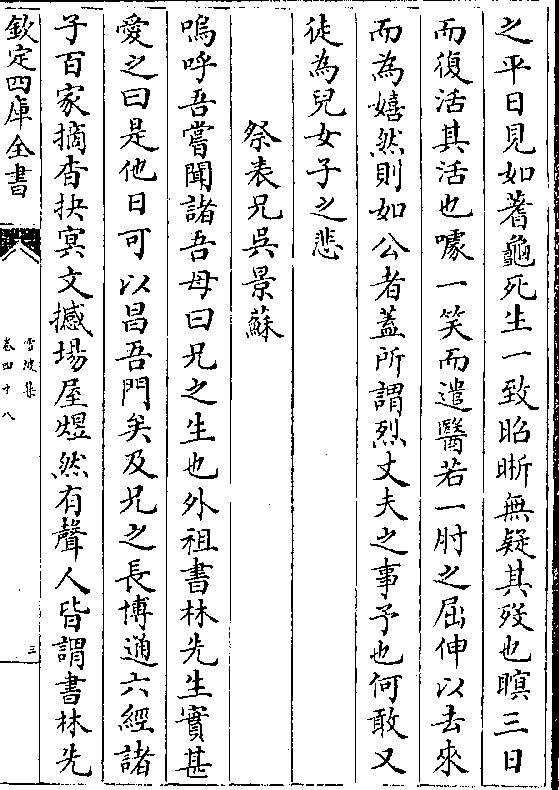 之平日見如蓍龜死生一致昭晣無疑其歿也瞑三日
而復活其活也噱一笑而遣醫若一肘之屈伸以去來
而為嬉然則如公者蓋所謂烈丈夫之事予也何敢又
徒為兒女子之悲
祭表兄吳景蘇
嗚呼吾嘗聞諸吾母曰兄之生也外祖書林先生實甚
愛之曰是他日可以昌吾門矣及兄之長博通六經諸
子百家摘杳抉冥文撼場屋煜然有聲人皆謂書林先
欽定四庫全書
雪坡集
卷四十八
三